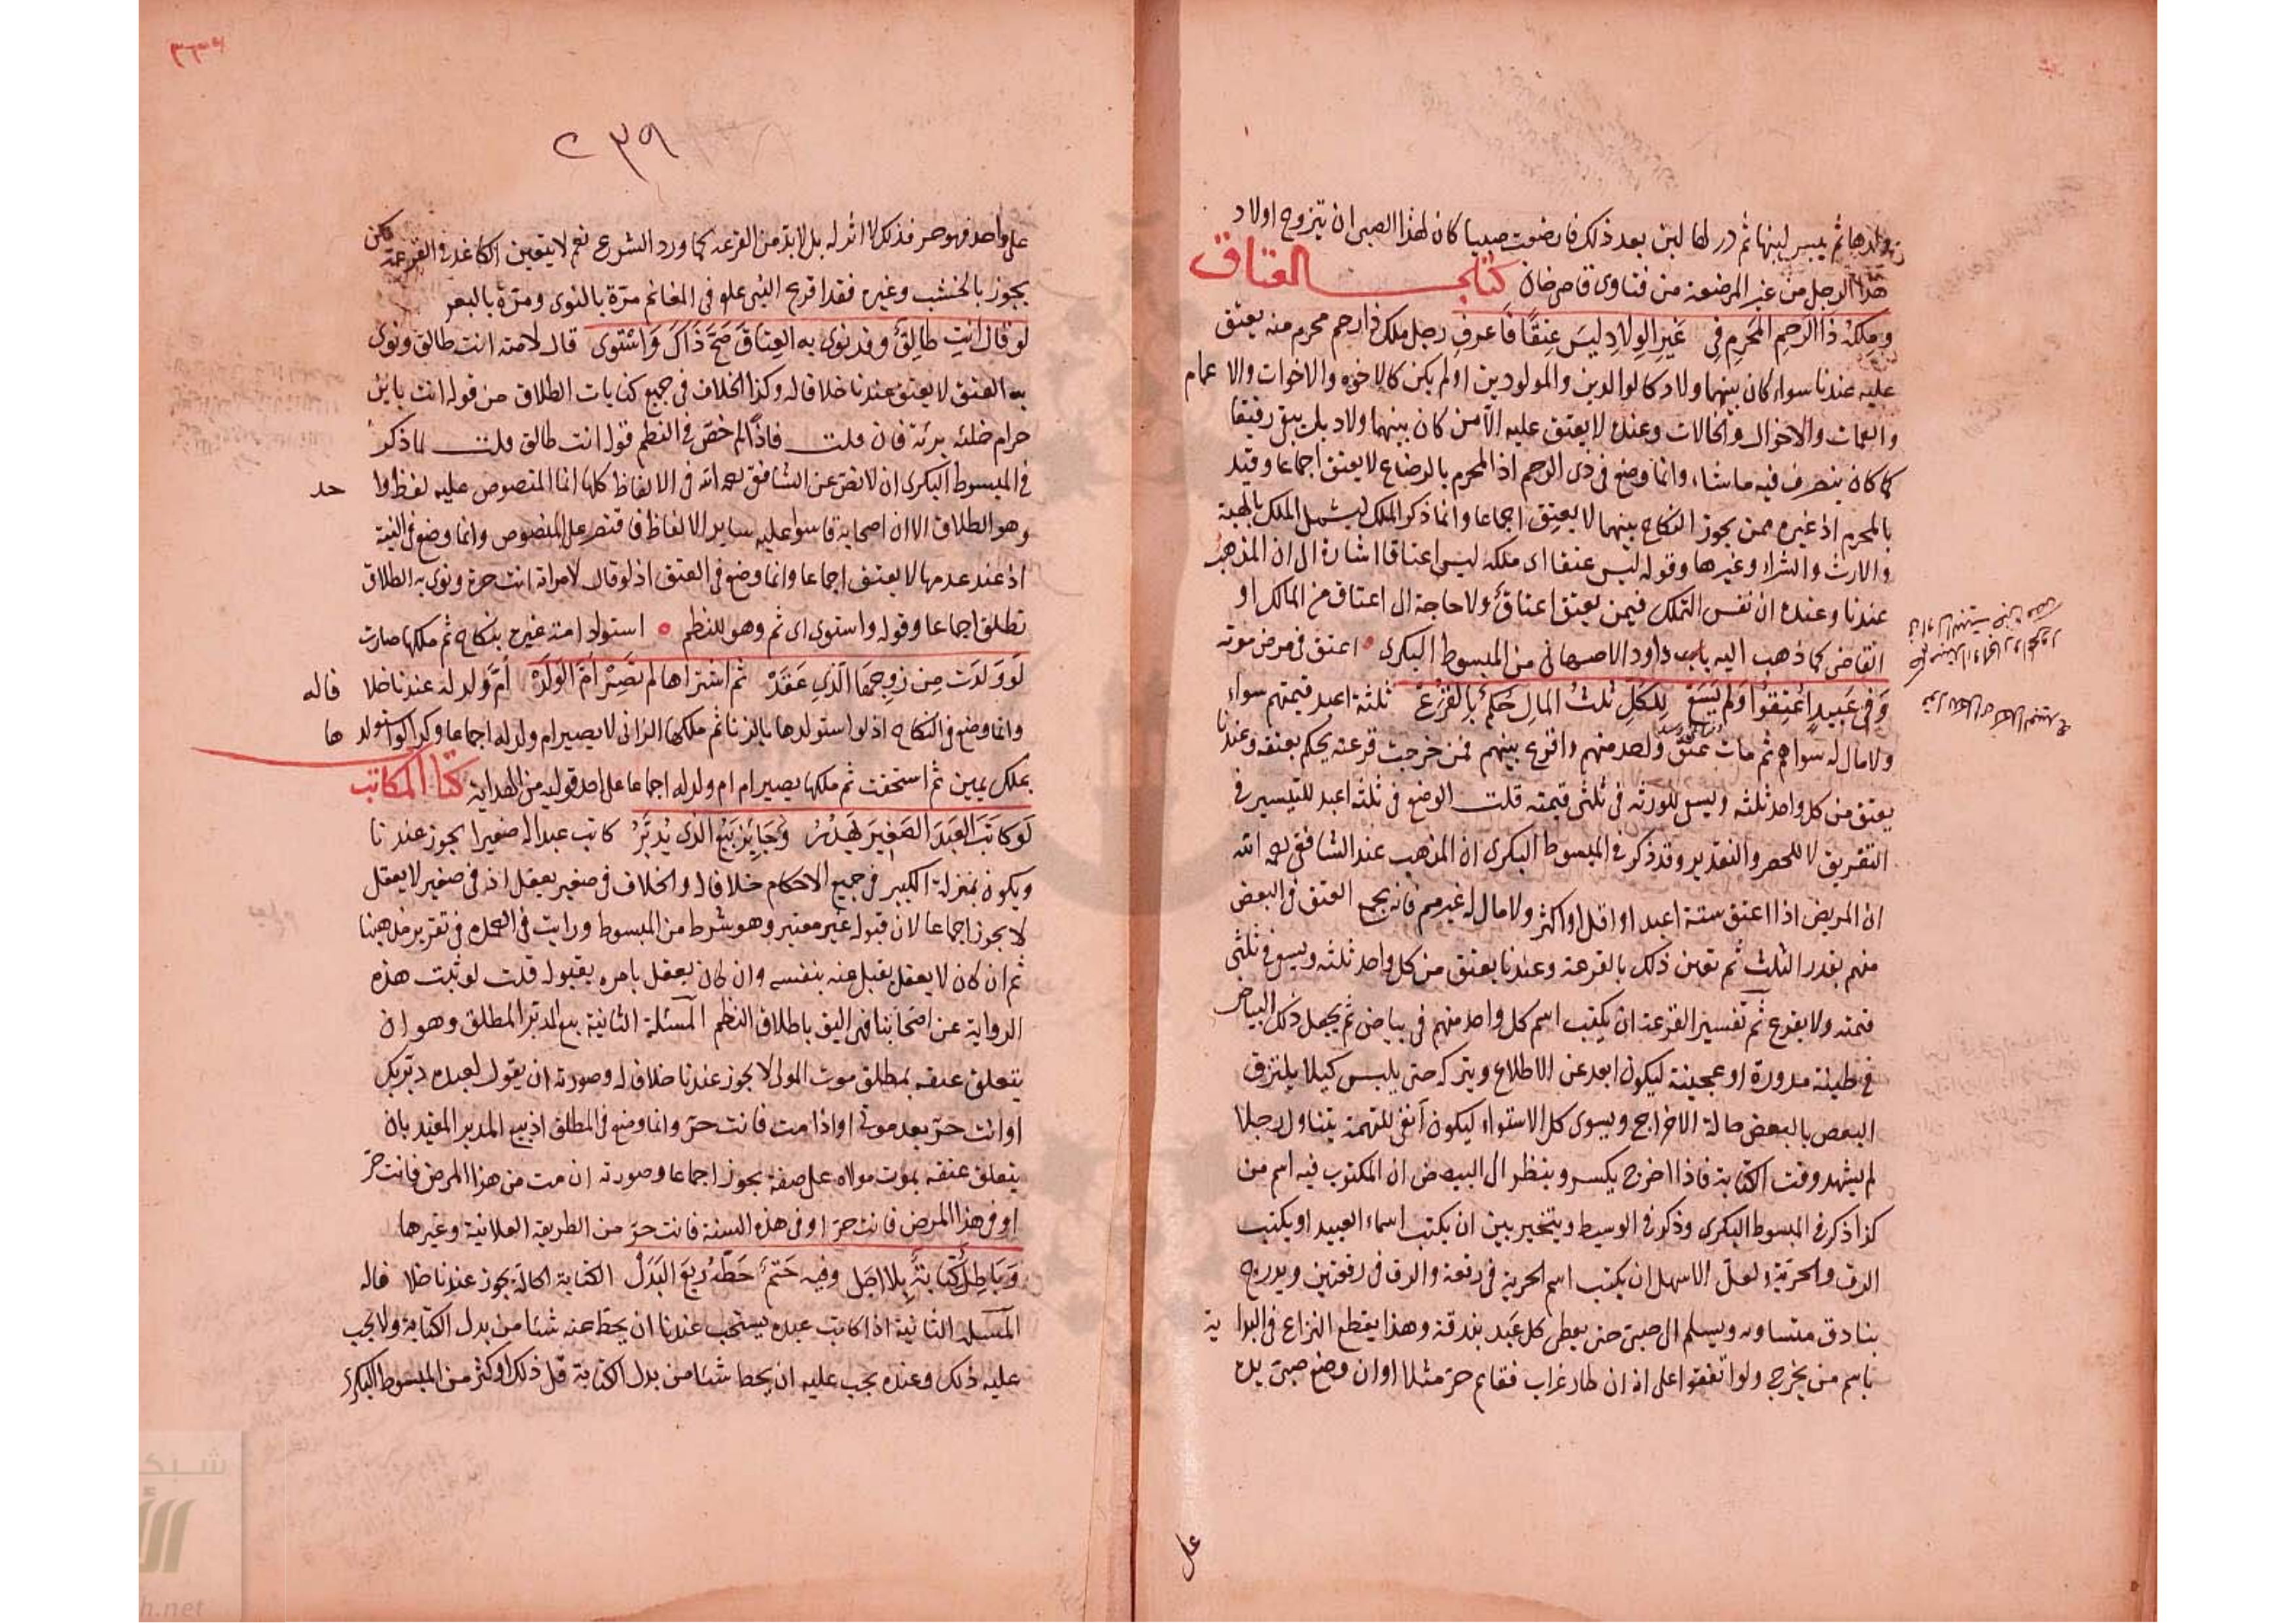 ولدها ثم يبس لبنها ثم در لها لبن بعد ذلك فارضعت صبيا كان لهذا الصبي ان يتزوج اولاد
هذا الرجل من غير المرضعة من فتاوى قاضي خان كتاب العتاق
وملكه ذا الرحم المحرم في غير الولاد ليس عتقا فاعرف رجل ملك ذا رحم محرم منه يعتق
عليه عندنا سواء كان بينهما ولاد كالوالدين والمولودين او لم يكن كالاخوة والاخوات والاعمام
والعمات والاخوال والخالات وعنده لا يعتق عليه الا من كان بينهما ولاد بل يبقى رقيقا
كما كان يتصرف فيه ما شاء وانما وضع في ذى الرحم اذ المحرم بالرضاع لا يعتق اجماعا وقيد
بالمحرم اذ غيره ممن يجوز النكاح بينهما لا يعتق اجماعا وانما ذكر الملك ليشمل الملك بالهبة
والارث والشراء وغيرها وقوله ليس عتقا اى ملكه ليس اعتاقا اشارة الى ان المذهب
عندنا وعنده ان نفس التملك فيمن يعتق اعتاق ولا حاجة الى اعتاق من المالك او
القاضي كما ذهب اليه داود الاصبهاني من المبسوط البكرى اعتق في مرض موته
وفي عبيد اعتقوا ولم يسع للكل ثلث المال حكم بالقرع ثلثة اعبد قيمتهم سواء
ولا مال له سواهم ثم مات عتق واحد منهم واقرع بينهم فمن خرجت قرعته يحكم بعتقه وعندنا
يعتق من كل واحد ثلثه ويسعى للورثة في ثلثى قيمته قلت الوضع في ثلثة اعبد للتيسير في
التفريق لا للحصر والتقدير وقد ذكر في المبسوط البكرى ان المذهب عند الشافعي رحمه الله
ان المريض اذا اعتق ستة اعبد او اقل او اكثر ولا مال له غيرهم فانه يجمع العتق في البعض
منهم بقدر الثلث ثم تعين ذلك بالقرعة وعندنا يعتق من كل واحد ثلثه ويسعى في ثلثى
قيمته ولا يقرع ثم تفسير القرعة ان يكتب اسم كل واحد منهم في بياض ثم يجعل ذلك البياض
في طينة مدورة او عجينة ليكون ابعد عن الاطلاع ويتركه حتى يلبس كيلا يلتزق
البعض بالبعض حالة الاخراج ويسوى كل الاستواء ليكون انفى للتهمة يتناول رجلا
لم يشهد وقت الكتابة فاذا اخرج يكسر وينظر الى البياض ان المكتوب فيه اسم من
كذا ذكر في المبسوط البكرى وذكر في الوسيط ويتخير بين ان يكتب اسماء العبيد او يكتب
الرق والحرية ولعل الاسهل ان يكتب اسم الحرية في رقعة والرق في رقعتين ويدرج
بنادق متساوية ويسلم الى صبي حتى يعطى كل عبد بندقة وهذا يقطع النزاع في البداية
باسم من يخرج ولو اتفقوا على انه ان طار غراب فغانم حر مثلا او ان وضع صبي يده
على
٢٣٩
على واحد فهو حر فذلك لا اثر له بل لا بد من القرعة كما ورد الشرع نعم لا يتعين الكاغد في القرعة لكن
يجوز بالخشب وغيره فقد اقرع النبي علم في المغانم مرة بالنوى ومرة بالبعر
لو قال انت طالق وقد نوى به العتاق صح ذاك واستوى قال لامته انت طالق ونوى
به العتق لا يعتق عندنا خلافا له وكذا الخلاف في جميع كنايات الطلاق من قوله انت باين
حرام خلية برئة فان قلت فلماذا خص في النظم قوله انت طالق قلت لما ذكر
في المبسوط البكرى ان لا نص عن الشافعي رحمه الله في الالفاظ كلها انما المنصوص عليه لفظ واحد
وهو الطلاق الا ان اصحابه قاسوا عليه ساير الالفاظ فاقتصر على المنصوص وانما وضع في النية
اذ عند عدمها لا يعتق اجماعا وانما وضع في العتق اذ لو قال لامراته انت حرة ونوى به الطلاق
تطلق اجماعا وقوله واستوى اى ثم وهو للنظم استولد امة غيره بنكاح ثم ملكها صارت
لو ولدت من زوجها الذي عقد ثم اشتراها لم تصر ام الولد ام ولد له عندنا خلافا له
وانما وضع في النكاح اذ لو استولدها بالزنا ثم ملكها الزاني لا يصير ام ولد له اجماعا وكذا لو استولدها
بملك يمين ثم استحقت ثم ملكها يصير ام ولد له اجماعا على احد قوليه من الهداية كتاب المكاتب
لو كاتب العبد الصغير يهدر وجايز بيع الذى يدبر كاتب عبدا له صغيرا يجوز عندنا
ويكون بمنزلة الكبير في جميع الاحكام خلافا له والخلاف في صغير يعقل اذ في صغير لا يعقل
لا يجوز اجماعا لان قبوله غير معتبر وهو شرط من المبسوط ورايت في العمدة في تقرير مذهبنا
ثم ان كان لا يعقل يقبل عنه بنفسه وان كان يعقل يامره بقبوله قلت لو ثبت هذه
الرواية عن اصحابنا فهي اليق باطلاق النظم المسئلة الثانية بيع المدبر المطلق وهو ان
يتعلق عتقه بمطلق موت المولى لا يجوز عندنا خلافا له وصورته ان يقول لعبده دبرتك
او انت حر بعد موتي او اذا مت فانت حر وانما وضع في المطلق اذ بيع المدبر المقيد بان
يتعلق عتقه بموت مولاه على صفة يجوز اجماعا وصورته ان مت من هذا المرض فانت حر
او في هذا المرض فانت حر او في هذه السنة فانت حر من الطريقة العلائية وغيرها
وباطل كتابة بلا اجل وفيه حتم حطه ربع البدل الكتابة الحالة يجوز عندنا خلافا له
المسئلة الثانية اذا كاتب عبده يستحب عندنا ان يحط عنه شيئا من بدل الكتابة ولا يجب
عليه ذلك وعنده يجب عليه ان يحط شيئا من بدل الكتابة قل ذلك او كثر من المبسوط البكرى